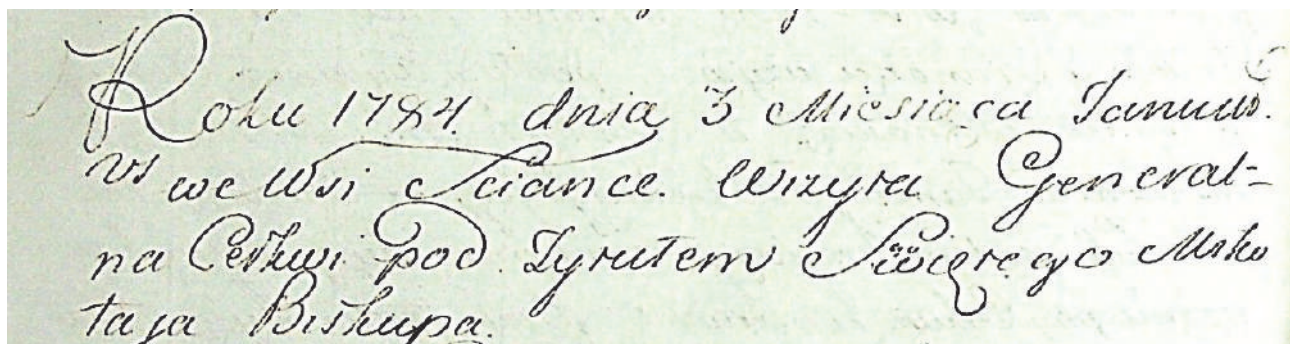 Roku 1784 dnia 3 Miesiąca Januar.
v s we Wsi Sciance. Wizyta General-
na Cerkwi pod Tytułem Swiętego Miko
łaja Biskupa.